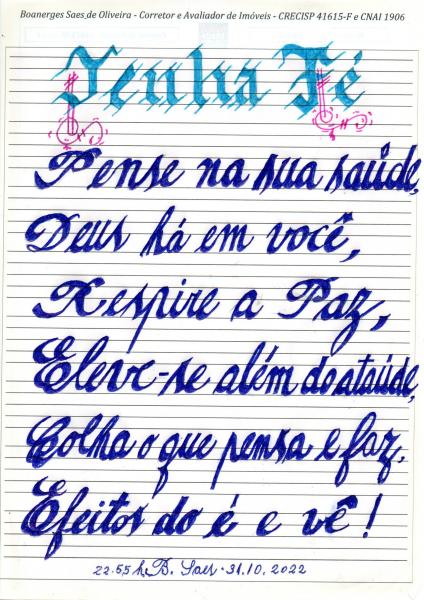 Boanerges Saes de Oliveira - Corretor e Avaliador de Imóveis - CRECISP 41615-F e CNAI 1906
Tenha Fé
Pense na sua saúde,
Deus há em você,
Respire a Paz,
Eleve-se além do ataúde,
Colha o que pensa e faz.
Efeitos do é e vê!
22:55 h. B. Saes - 31.10.2022